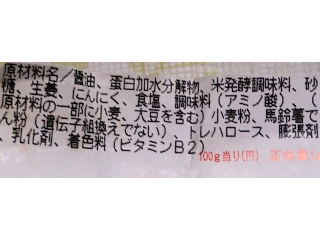 原材料名／醤油、蛋白加水分解物、米発酵調味料、砂
糖、生姜、にんにく、食塩、調味料（アミノ酸）、（
原材料の一部に小麦、大豆を含む）小麦粉、馬鈴薯で
ん粉（遺伝子組換えでない）、トレハロース、膨張剤
、乳化剤、着色料（ビタミンＢ２）
100g当り(円)